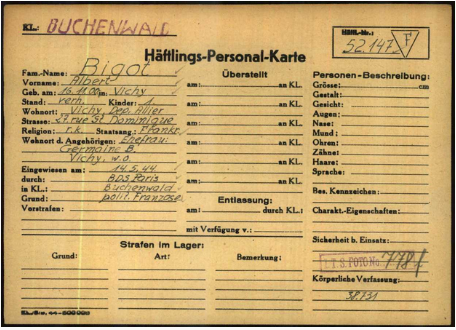 KL: BUCHENWALD
Häftl.-Nr.:
52.147 F
Häftlings-Personal-Karte
Fam.-Name: Bigot
Vorname: Albert
Geb. am: 16.11.00 in: Vichy
Stand: verh. Kinder: 1
Wohnort: Vichy, Dep. Allier
Strasse: rue St. Dominique
Religion: r.k. Staatsang.: Frankr.
Wohnort d. Angehörigen: Ehefrau:
Germaine B.
Vichy, w.o.
Eingewiesen am: 14.5.44
durch: BDS Paris
in KL.: Buchenwald
Grund: polit. Franzose
Vorstrafen:
Überstellt
am: an KL.
am: an KL.
am: an KL.
am: an KL.
am: an KL.
am: an KL.
Entlassung:
am: durch KL.:
mit Verfügung v.:
Personen-Beschreibung:
Grösse: cm
Gestalt:
Gesicht:
Augen:
Nase:
Mund:
Ohren:
Zähne:
Haare:
Sprache:
Bes. Kennzeichen:
Charakt.-Eigenschaften:
Sicherheit b. Einsatz:
I.T.S. FOTO No.
Körperliche Verfassung:
Strafen im Lager:
Grund: Art: Bemerkung: